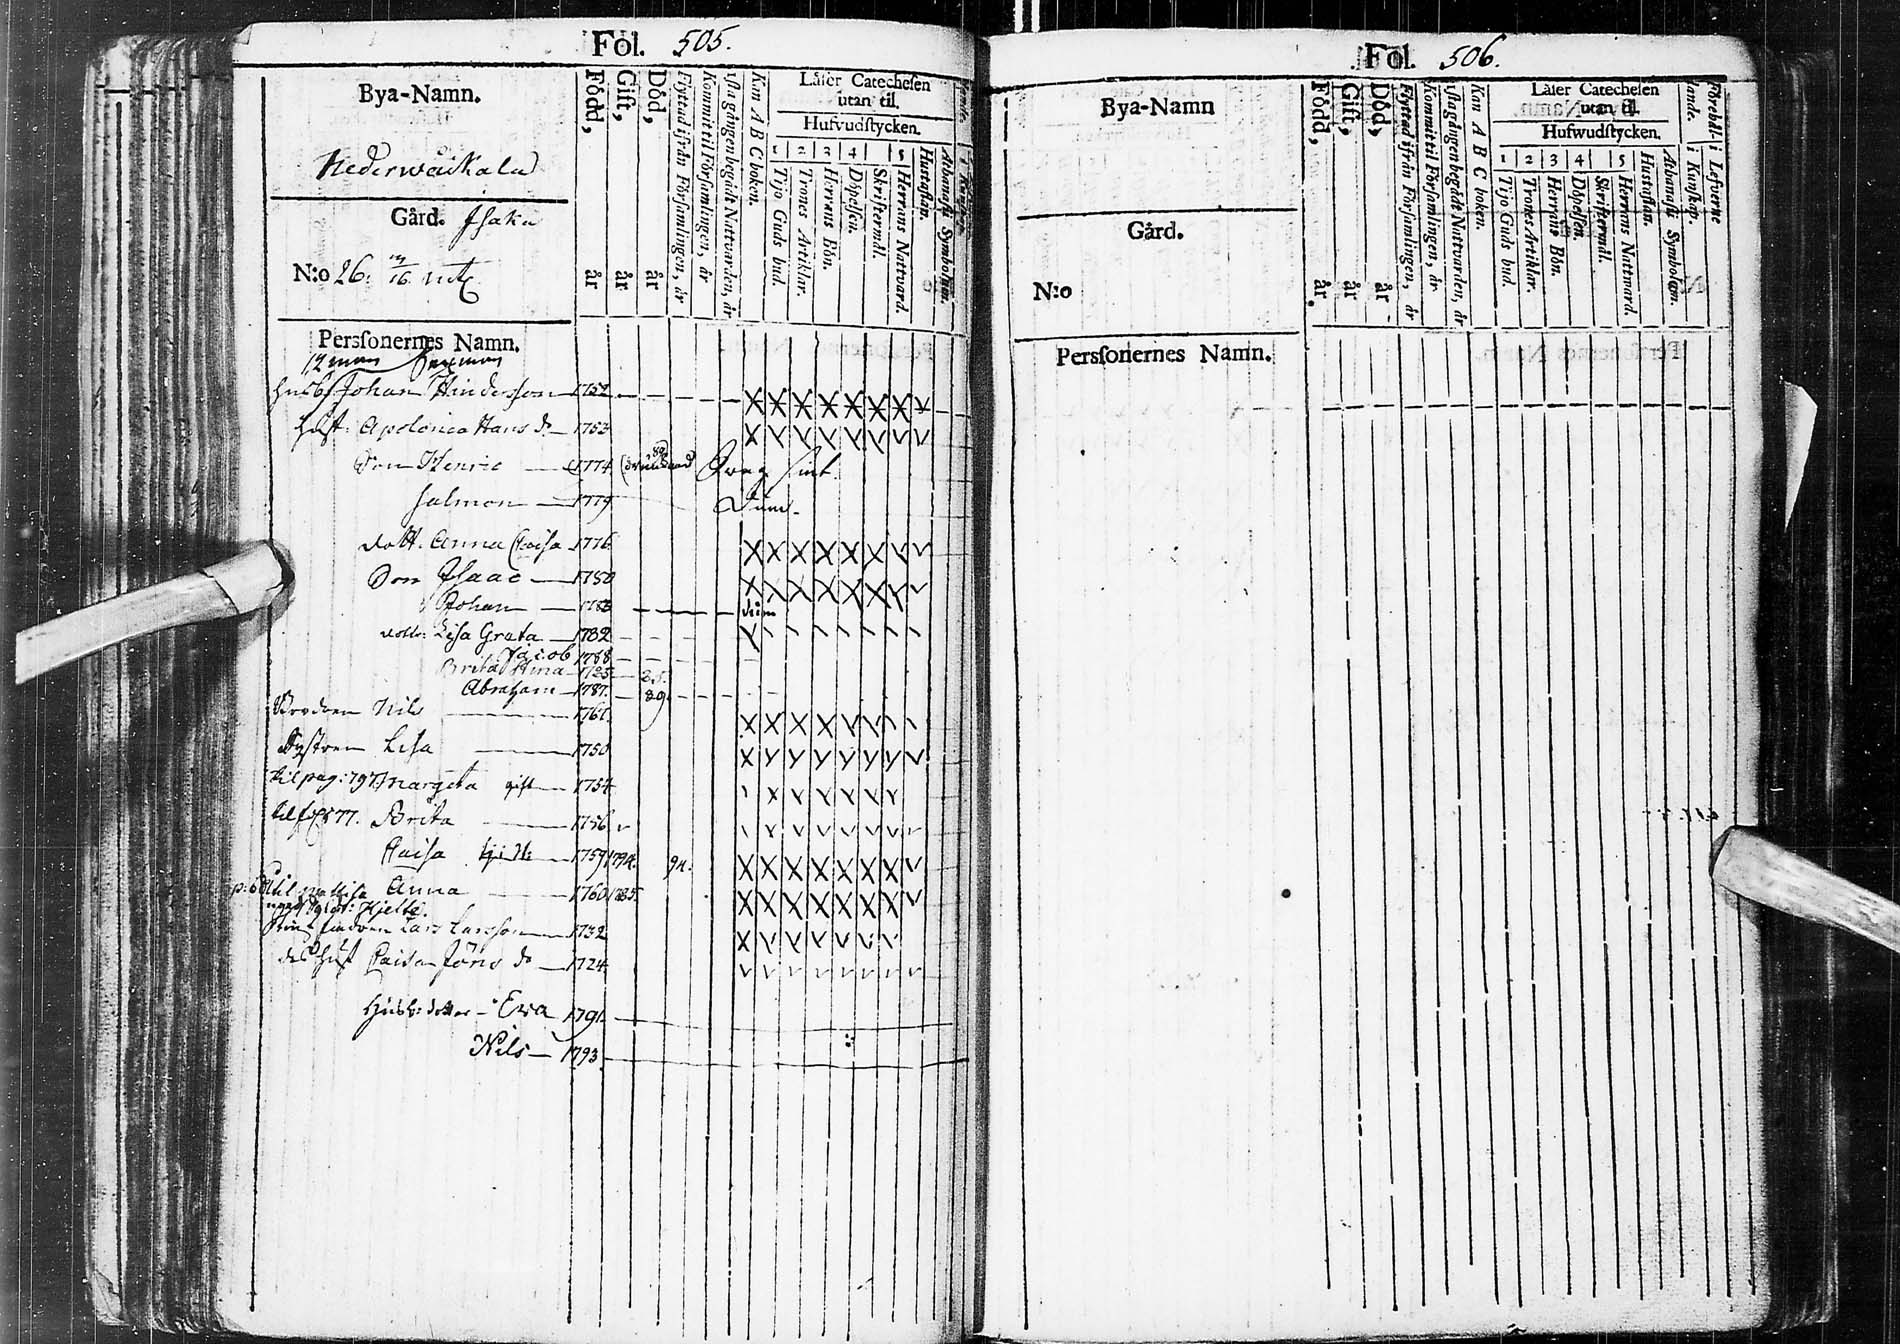 Fol. 505.
Bya-Namn.
Nederweikala
Gård. Isaku
N:o 26.
Persſonernes Namn.
Född, år
Gift, år
Död, år
Flyttad ifrån Förſamlingen, år
Kommit til Förſamlingen, år
1ſta gången begådt Nattvarden, år
Kan A B C boken.
Läſer Catecheſen
utan til.
Hufvudſtycken.
1 2 3 4 5
Tijo Guds bud.
Trones Artiklar.
Herrans Bön.
Döpelſen.
Skriftermål.
Herrans Nattvard.
Huſtaflan.
Athanaſii Symbolum.
12 man Sexman
Johan Hindersson 1752
Hust: Apolonia Hans d. 1753
Son Henric 1774
Salmon 1779 Dum.
dott. Anna Caisa 1776
Son Isaac 1780
Johan 1783 dum
dotter: Lisa Greta 1782
Jacob 1788
Brita Stina 1785 85.
Abraham 1787. 89.
Brodren Nils 1761
Systren Lisa 1750
til pag: 797 Margeta gift 1754
til fol 577. Brita 1756
Caisa 1759 1794. 94.
til Anna 1760 1785.
Hjelte.
Lars Larsson 1732
des Hust Caisa Jöns do 1724
Husb: dotter Ewa 1791
Nils 1793
Fol. 506.
Bya-Namn
Gård.
N:o
Persſonernes Namn.
Född, år
Gift, år
Död, år
Flyttad ifrån Förſamlingen, år
Kommit til Förſamlingen, år
1ſta gången begådt Nattvarden, år
Kan A B C boken.
Läſer Catecheſen
utan til.
Hufwudſtycken.
1 2 3 4 5
Tijo Guds bud.
Trones Artiklar.
Herrans Bön.
Döpelſen.
Skriftermål.
Herrans Nattward.
Huſtaflan.
Athanaſii Symbolum.
Förehållande.
i Kunſkap.
i Lefwerne